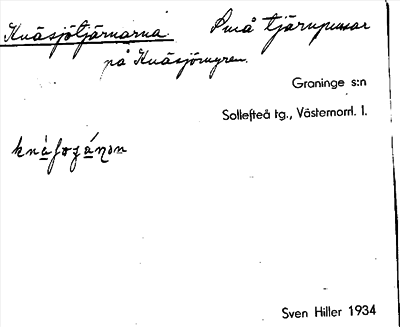 Knäsjötjärnarna. Små tjärnpussar
på Knäsjömyren.
Graninge s:n
Sollefteå tg., Västernorrl. l.
Sven Hiller 1934